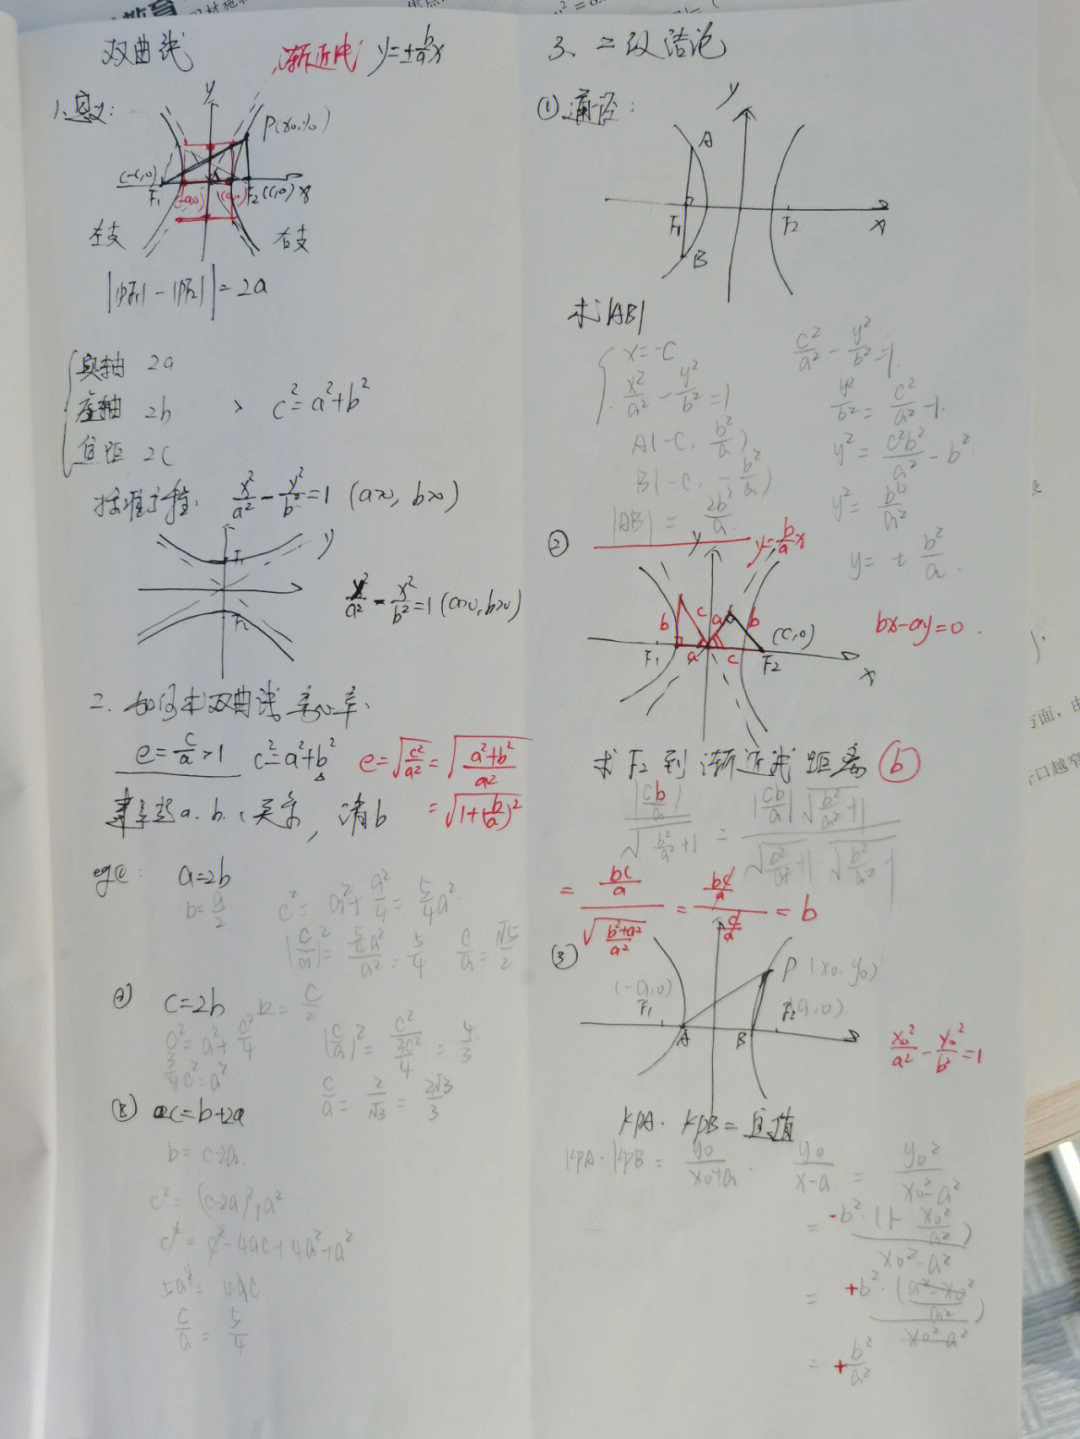 双曲线
渐近线 y=±b/a x
1、定义:
y
P(x₀,y₀)
(-c,0)
F₁
(-a,0)
(a,0)
F₂
(c,0)
x
左支
右支
||PF₁|-|PF₂||=2a
实轴 2a
虚轴 2b , c²=a²+b²
焦距 2c
标准方程: x²/a²-y²/b²=1 (a>0, b>0)
y
F₁
F₂
y²/a²-x²/b²=1 (a>0,b>0)
2. 如何求双曲线离心率.
e=c/a>1 c²=a²+b² e=√(c²/a²)=√((a²+b²)/a²)
=√(1+(b/a)²)
a、b、c 关系, 消b
eg①: a=2b
b=a/2 c²=a²+a²/4=5/4a²
(c/a)²=(5/4a²)/a²=5/4 c/a=√5/2
② c=2b b=c/2
c²=a²+c²/4 (c/a)²=c²/(3c²/4)=4/3
3/4c²=a²
c/a=2/√3=2√3/3
③ 2c=b+2a
b=c-2a
c²=(c-2a)²+a²
c²=c²-4ac+4a²+a²
5a²=4ac
c/a=5/4
3、二级结论
①通径:
y
A
F₁
F₂
x
B
求|AB|
x=-c c²/a²-y²/b²=1
x²/a²-y²/b²=1 y²/b²=c²/a²-1
A(-c, b²/a) y²=c²b²/a²-b²
B(-c, -b²/a) y²=b⁴/a²
|AB|=2b²/a
y=±b²/a
②
y
y=b/a x
b
c
a
b
(c,0)
F₁
a
c
F₂
x
bx-ay=0
求F₂到渐近线距离 b
|cb/a|/√(b²/a²+1)=|cb/a|√(b²/a²+1)/(√(b²/a²+1)√(b²/a²+1))
=(bc/a)/√((b²+a²)/a²)=(bc/a)/(c/a)=b
③
P(x₀,y₀)
(-a,0)
F₁
F₂
(a,0)
A
B
x₀²/a²-y₀²/b²=1
kPA·kPB=定值
kPA·kPB=y₀/(x₀+a)·y₀/(x-a)=y₀²/(x₀²-a²)
=-b²·(1-x₀²/a²)/(x₀²-a²)
=+b²·((a²-x₀²)/a²)/(x₀²-a²)
=+b²/a²